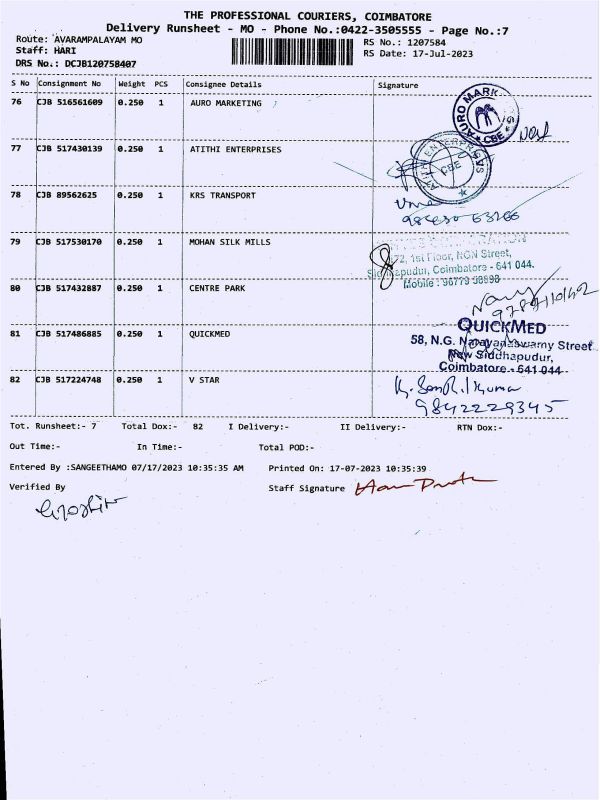 THE PROFESSIONAL COURIERS, COIMBATORE
Delivery Runsheet - MO - Phone No.:0422-3505555 - Page No.:7
Route: AVARAMPALAYAM MO
RS No.: 1207584
Staff: HARI
RS Date: 17-Jul-2023
DRS No.: DCJB120758407
S No Consignment No Weight PCS Consignee Details Signature
76 CJB 516561609 0.250 1 AURO MARKETING
AURO MARK CBE
77 CJB 517430139 0.250 1 ATITHI ENTERPRISES
CBE
78 CJB 89562625 0.250 1 KRS TRANSPORT
79 CJB 517530170 0.250 1 MOHAN SILK MILLS
72, 1st Floor, NGN Street,
Coimbatore - 641 044.
Mobile : 96779
80 CJB 517432887 0.250 1 CENTRE PARK
81 CJB 517486885 0.250 1 QUICKMED
QUICKMED
58, N.G. Narayanaswamy Street
New Siddhapudur,
Coimbatore - 641 044
82 CJB 517224748 0.250 1 V STAR
9842229345
Tot. Runsheet:- 7 Total Dox:- 82 I Delivery:- II Delivery:- RTN Dox:-
Out Time:- In Time:- Total POD:-
Entered By :SANGEETHAMO 07/17/2023 10:35:35 AM Printed On: 17-07-2023 10:35:39
Verified By Staff Signature